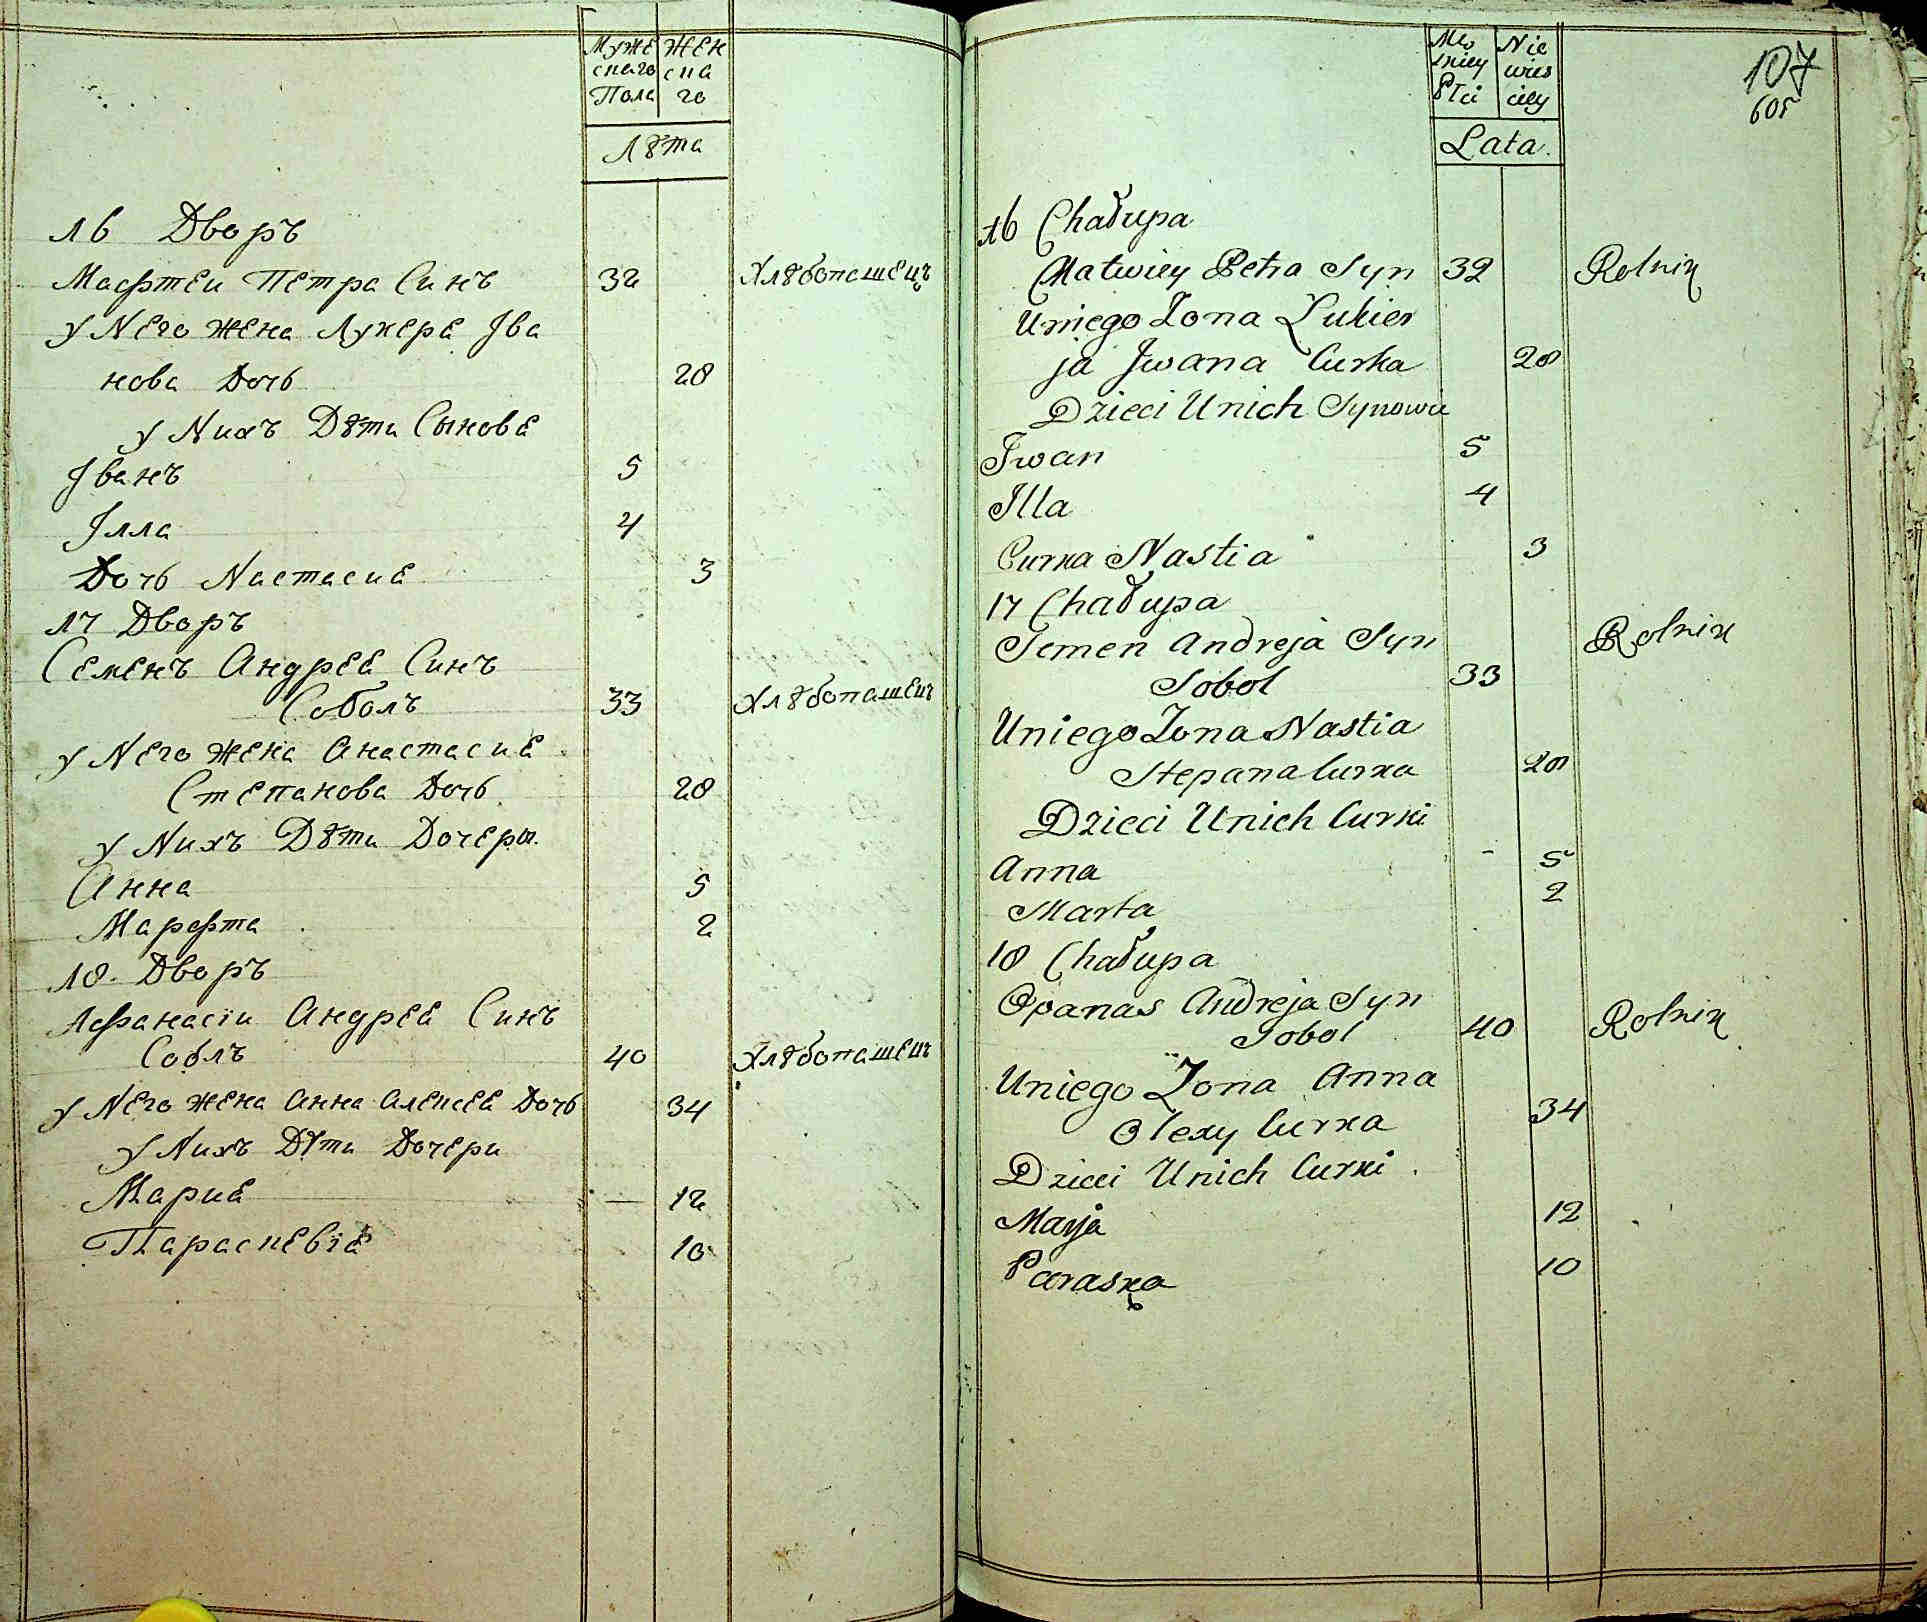 Муже Жен
скаго ска
Пола го
Лѣта
16 Дворъ
Мафтеи Петра Синъ 32 Хлѣбопашецъ
у Него жена Лукера Iва
нова Дочь 28
у Нихъ Дѣти Сынове
Iванъ 5
Iлла 4
Дочь Настасие 3
17 Дворъ
Семенъ Андрее Синъ
Соболъ 33 Хлѣбопашецъ
у Него жена Анастасие
Степанова Дочь 28
у Нихъ Дѣти Дочеры.
Анна 5
Марфта 2
18. Дворъ
Афанасiи Андрее Синъ
Соблъ 40 Хлѣбопашецъ
у Него жена Анна Алексее Дочь 34
у Нихъ Дѣти Дочери
Марие — 12
Параскевiе 10
107
605
Męs Nie
skiey wies
Płci ciey
Lata.
16 Chałupa
Matwiey Petra Syn 32 Rolnik
Uniego Zona Lukier
ja Jwana Curka 28
Dzieci Unich Synowie
Jwan 5
Illa 4
Curka Nastia 3
17 Chałupa
Semen Andreja Syn Rolnik
Sobol 33
Uniego Zona Nastia
Stepana Curka 28
Dzieci Unich Curki
Anna - 5
Marta 2
18 Chałupa
Opanas Andreja Syn
Sobol 40 Rolnik
Uniego Zona Anna
Olexy Curka 34
Dzieci Unich Curki.
Marja 12
Paraska 10